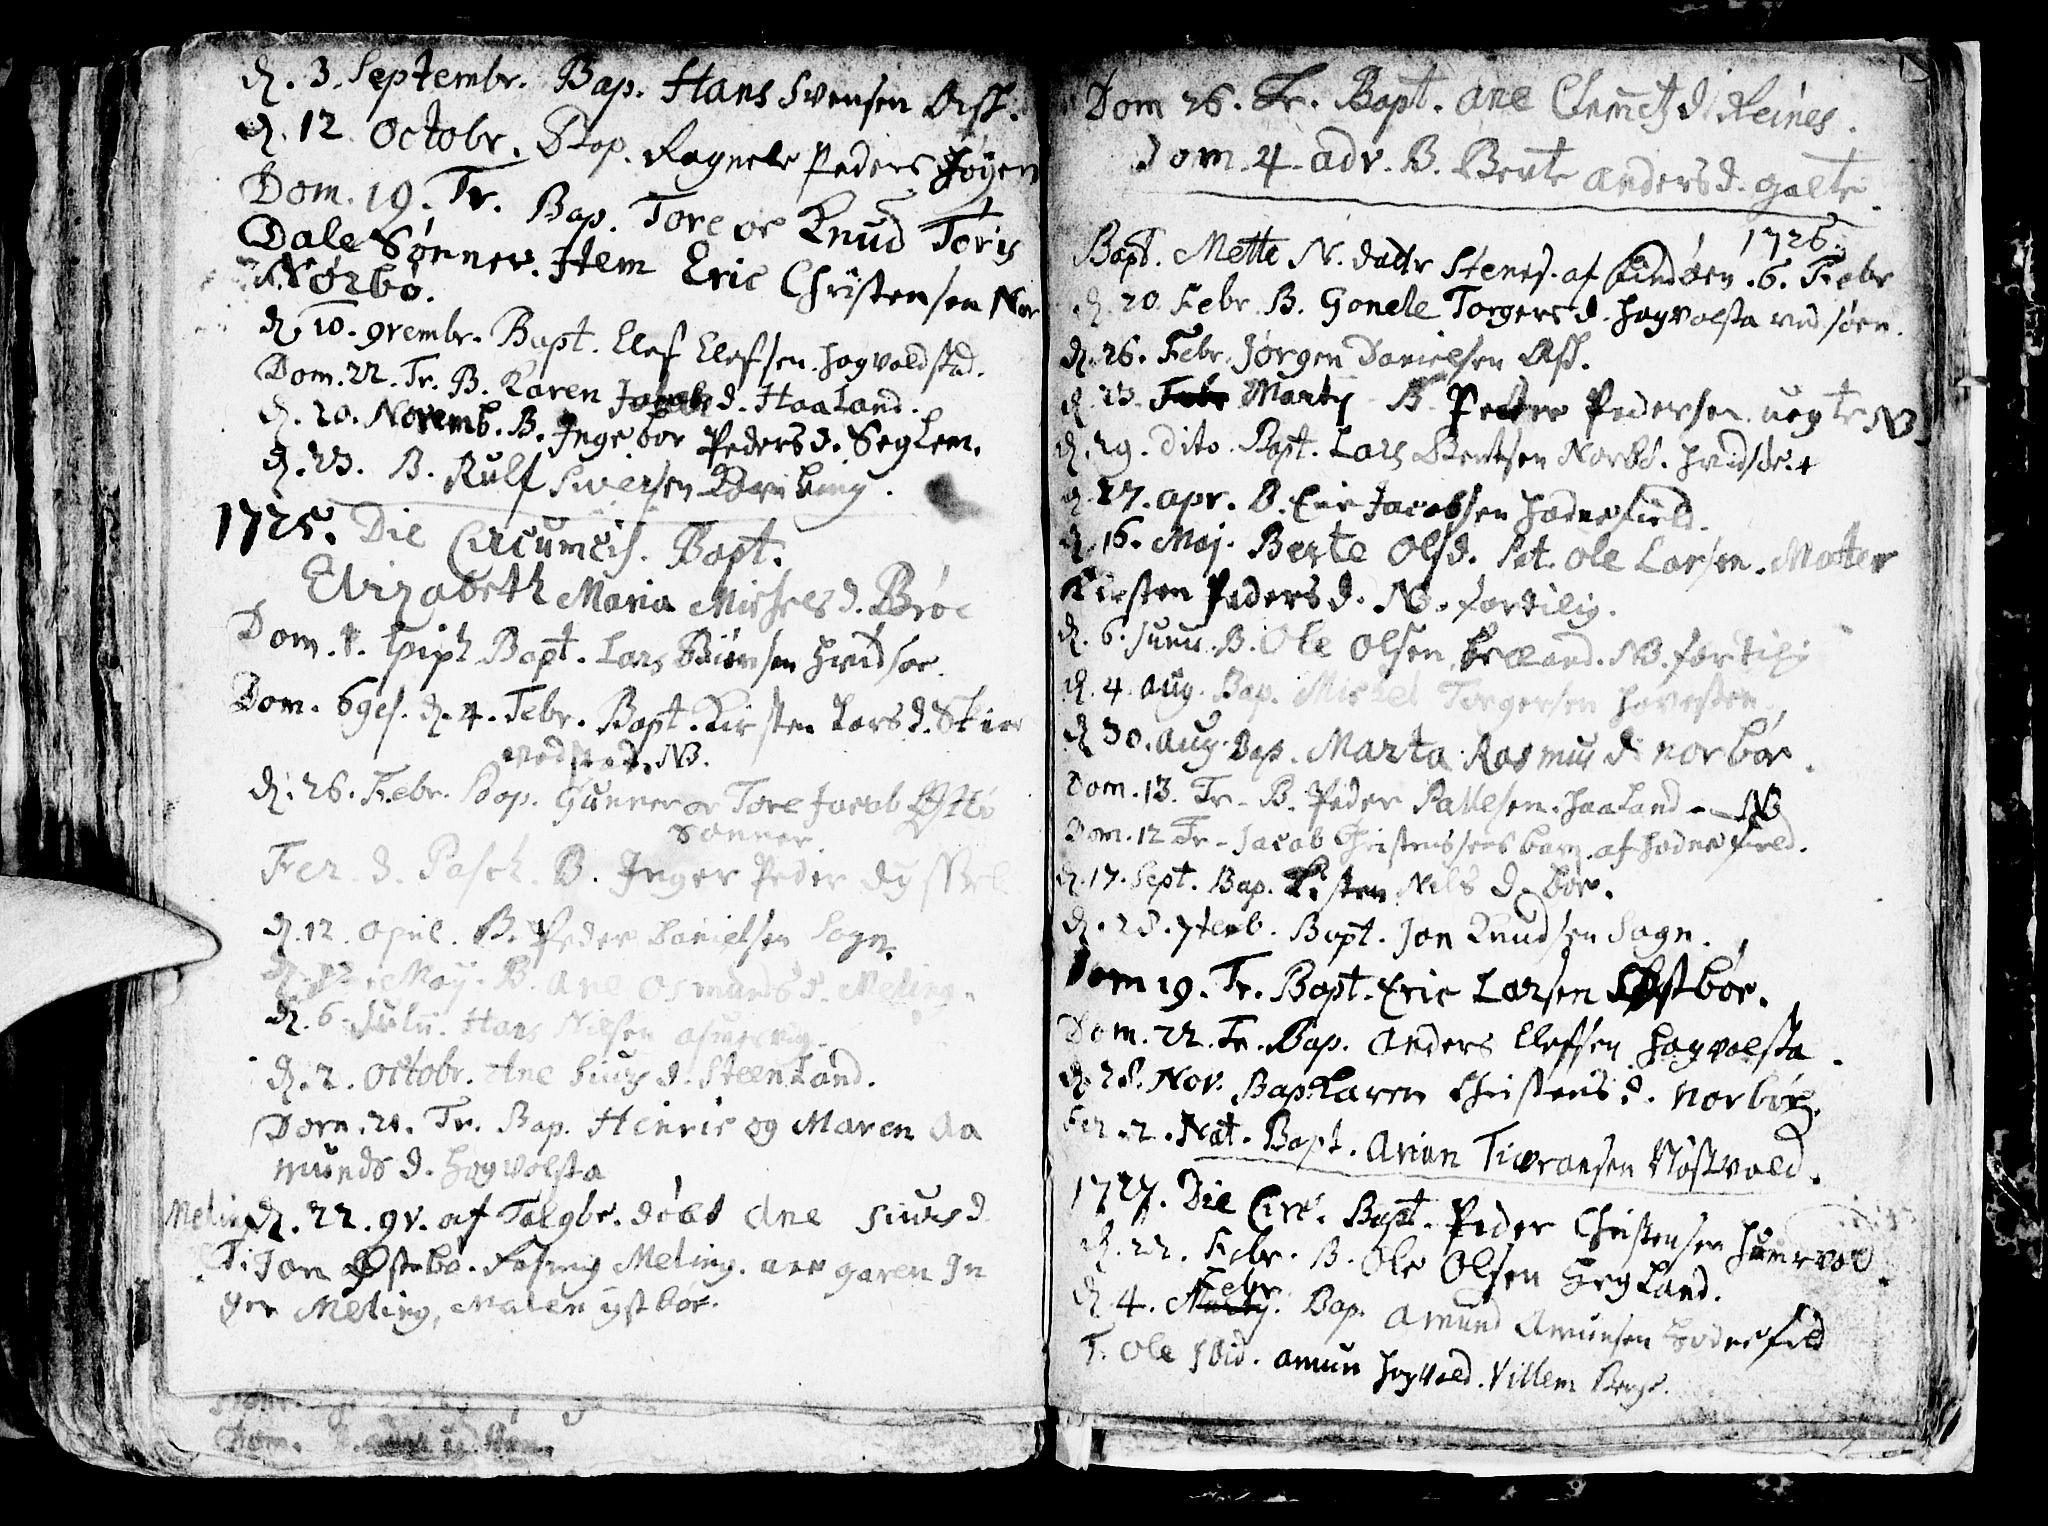 d. 3. Septembr. Bap. Hans Svensen Ask.
d. 12 Octobr. Bap. Ragnele Peders Høyen
Dom. 19. Tr. Bap. Tore oc Knud Toris
Dale Sønner. Item Eric Christensen Nor
Nørbø.
d. 10. 9vembr. Bapt. Elef Elefsen. Hogvoldstad.
Dom. 22. Tr. B. Karen Jacobs d. Haaland.
d. 20. Novemb. B. Ingebor Peders d. Seglem.
d. 23. B. Rulf Siversen
1725. Die Circumcis. Bapt.
Elizabeth Maria Michels d. Brøe
Dom. 1. Epiph. Bapt. Lars Biørnsen Hvidsøe.
Dom. 6ges. d. 4. Febr. Bapt. Kirsten Lars d. Skier
vedsted. NB.
d. 26. Febr. Bap. Gunner oc Tore Jacob Østbø
Sønner.
Fer. d. Pasch. B. Inger Peder
d. 12. April. B. Peder Danielsen Sogn.
d. Maÿ. B. Ane Osmunds d. Meling.
d. 6. Hans Nielsen
d. 2. Octobr. Ane Siurs d. Steenland.
Dom. 21. Tr. Bap. Henric og Maren Aa
munds d. Hogvolsta
Meling d. 22. 9v. af Talgbr. døbt Ane Siurs d.
T. Jon Østebø. Meling. Ane garen In
ger Meling, Malen ystbøe.
Dom 26. Tr. Bapt. Ane Clemets d. Reines.
Dom. 4. adv. B. Berte Anders d. Galte.
1726.
Bapt. Mette N. datter Stenes. af . 6. Febr
d. 20. Febr. B. Gonele Torgers d. Hogvolsta ved søen.
d. 26. Febr. Jørgen Danielsen Ask.
d. 23. Febr Martij B. Peder Pedersen uegte NB
d. 29. dito. Bapt. Lars Bentsen Norbø. Hvidsøe. +
d. 27. apr. B. Eric Jacobsen Hodnefield.
d. 16. Maj. Berte Ols d. Pat. Ole Larsen. Mater
Kirsten Peders d. NB. fortilig.
d. 6. Juni. B. Ole Olsen . NB. fortilig
d. 4. aug. Bap. Michel Torgersen Havesteen.
d. 30. aug. Bap. Marta Rasmus d. norbøe.
Dom. 13. Tr. B. Peder Pallesen. Haaland. NB
Dom. 12 Tr. Jacob Christenssens barn. af Hodnefield.
d. 17. Sept. Bap. Kisten Nils d. bøe.
d. 28. 7temb. Bapt. Jon Knudsen Sogn.
Dom 19. Tr. Bapt. Eric Larsen Østbøe.
Dom. 22. Tr. Bap. Anders Elefsen Hogvolsta.
d. 28. Nov. Bap. Karen Christens d. norbøe.
Fer. 2. Nat. Bapt. Arian Nøstvold.
1727. Die Circ. Bapt. Peder Christensen
d. 22. Febr. B. Ole Olsen Hegland.
d. 4. Martij. Febr. Bap. Amund Amunsen Hodnefild
T. Ole . amun Hogvold. Villem Berge.